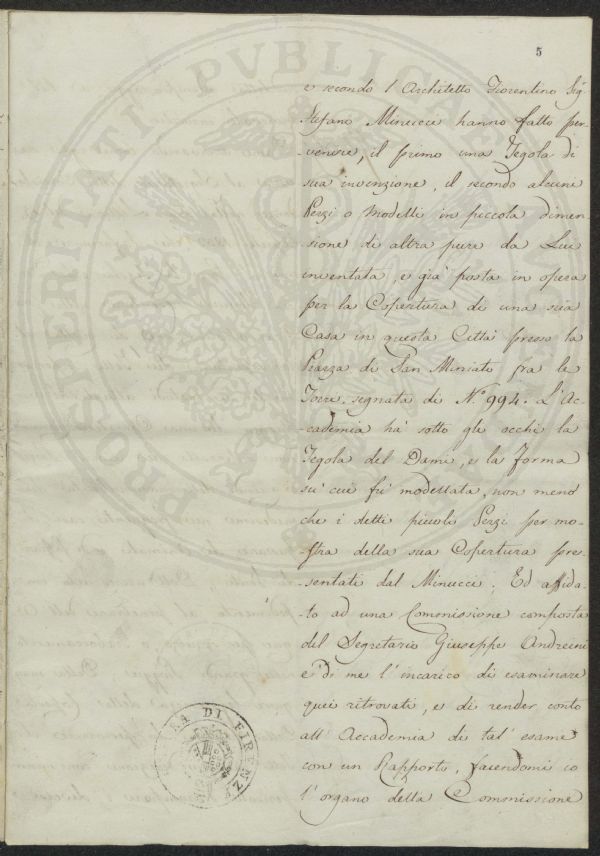 5
e secondo l'Architetto Fiorentino Sig
Stefano Minucci hanno fatto per-
venire, il primo una Tegola di
sua invenzione, il secondo alcuni
Pezzi o Modelli in piccola dimen-
sione di altra pure da Lui
inventata, e già posta in opera
per la Copertura di una sua
Casa in questa Città presso la
Piazza di San Miniato fra le
Torri segnata di N.° 994. L'Ac-
-cademia hà sotto gli occhi la
Tegola del Dami, e la Forma
su cui fù modellata, non meno
che i detti piccoli Pezzi per mo-
stra della sua Copertura pre-
sentati dal Minucci; Ed affida-
to ad una Commissione composta
del Segretario Giuseppe Andreini
e di me l'incarico di esaminare
quei ritrovati, e di render conto
all'Accademia di tal'esame
con un Rapporto, facendomi io
l'organo della Commissione
PROSPERITATI PUBLICAE
DI FIRENZE